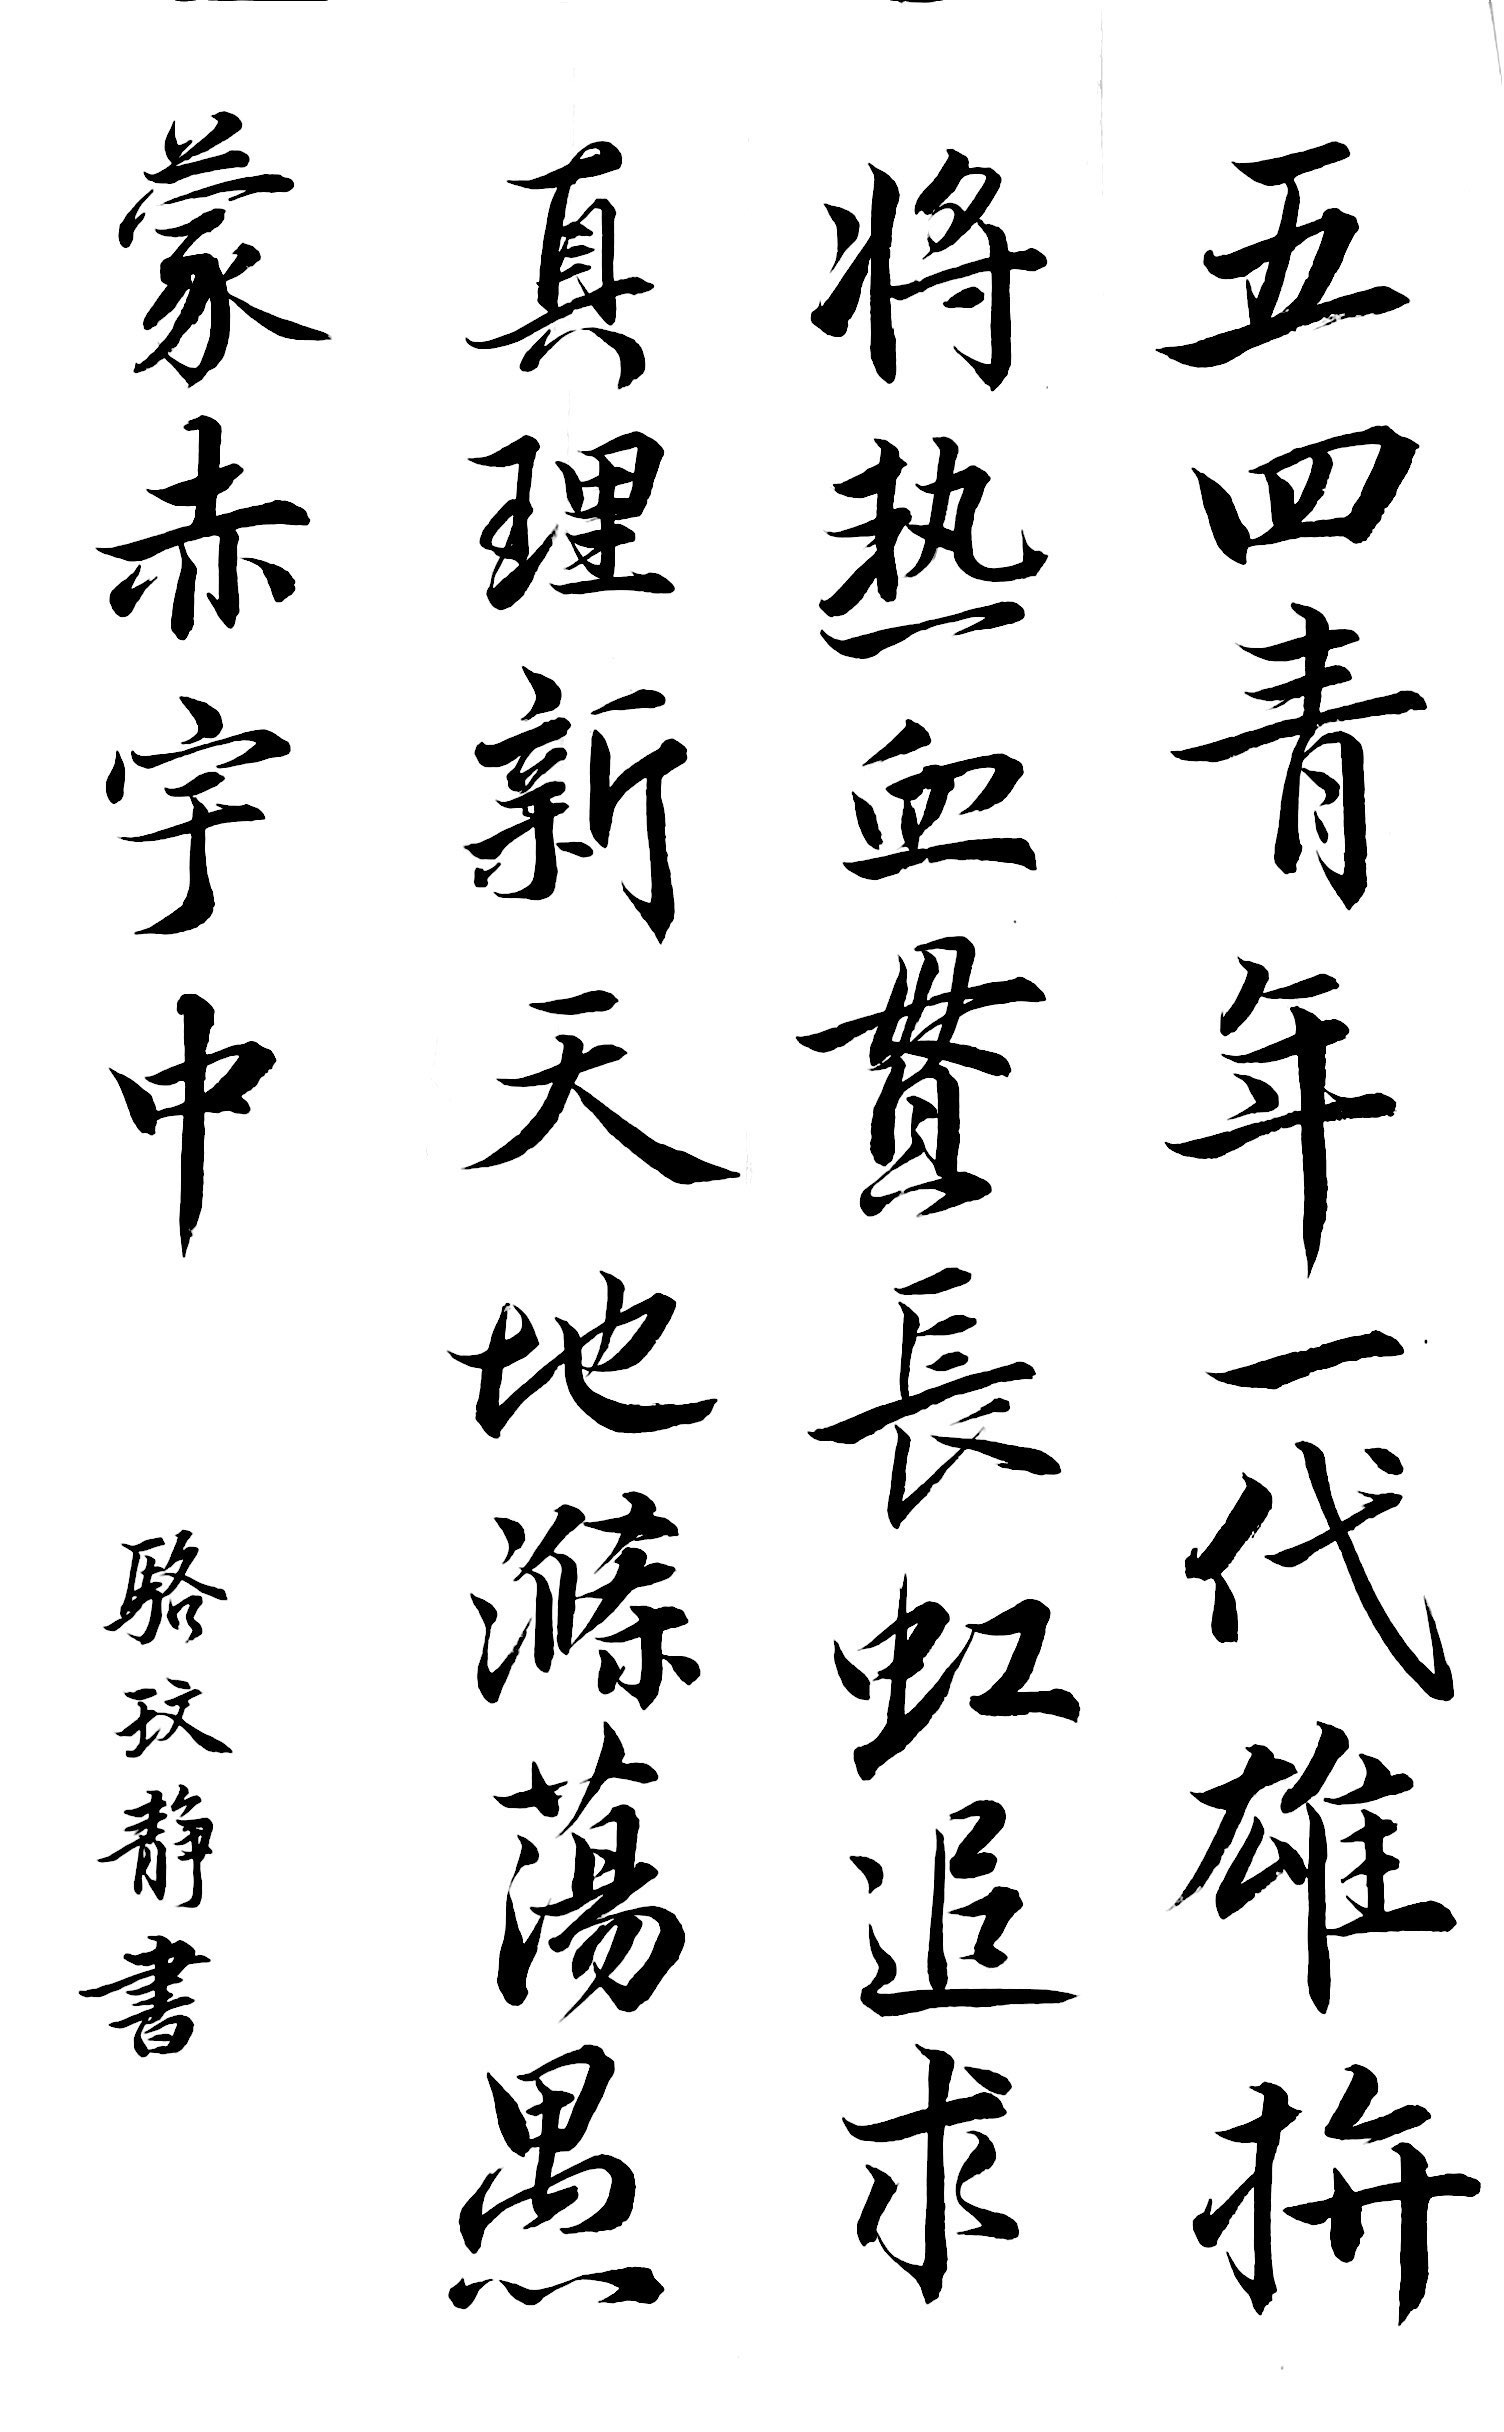 五四青年一代雄拚
將热血貫長虹追求
真理新天地滌蕩愚
蒙赤宇中
駱玟靜書